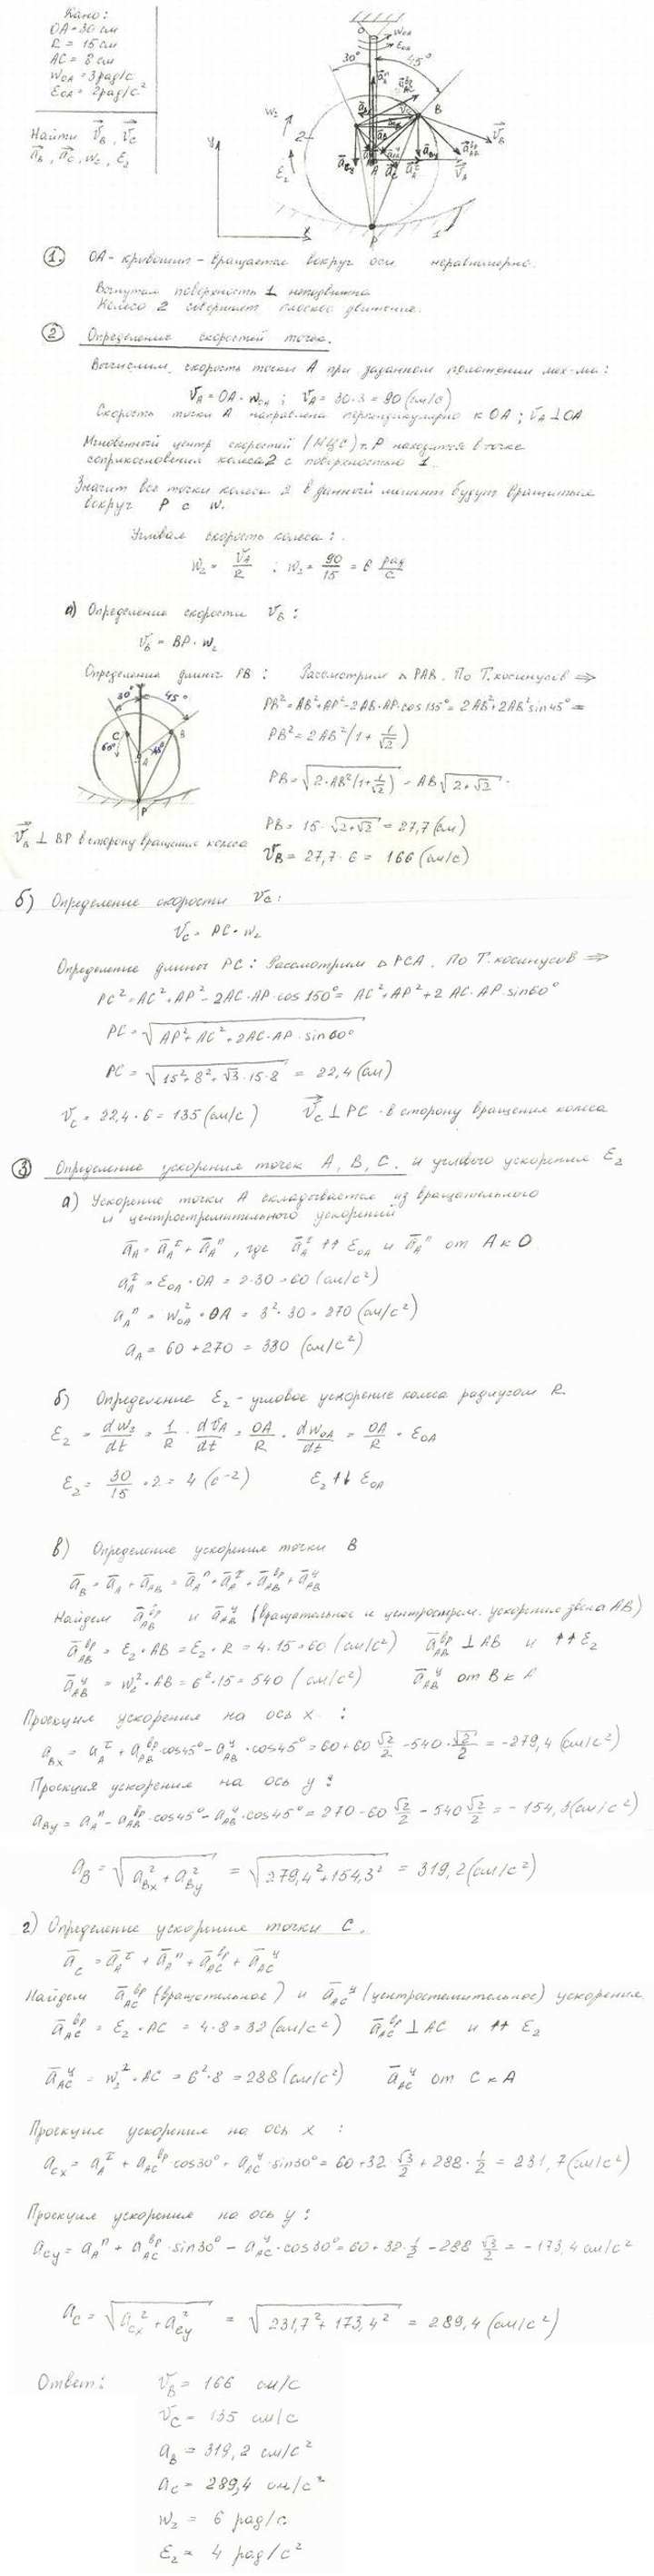 Дано:
OA = 30 см
R = 15 см
AC = 8 см
ω_OA = 3 рад/с
ε_OA = 2 рад/с²
Найти V̄_B, V̄_C
ā_B, ā_C, ω_2, ε_2
O
ω_OA
ε_OA
30°
45°
B
ω_2
2
ε_2
A
y
x
P
1
① OA - кривошип - вращается вокруг оси неравномерно.
Вогнутая поверхность 1 неподвижна
Колесо 2 совершает плоское движение.
② Определение скоростей точек.
Вычислим скорость точки A при заданном положении мех-ма:
V_A = OA · ω_OA ; V_A = 30·3 = 90 (см/с)
Скорость точки A направлена перпендикулярно к OA ; V_A ⊥ OA
Мгновенный центр скоростей (МЦС) т. P находится в точке
соприкосновения колеса 2 с поверхностью 1.
Значит все точки колеса 2 в данный момент будут вращаться
вокруг P с ω.
Угловая скорость колеса :
ω_2 = V_A/R ; ω_2 = 90/15 = 6 рад/с
а) Определение скорости V_B :
V_B = BP · ω_2
Определение длины PB : Рассмотрим Δ PAB. По Т. косинусов ⇒
PB² = AB² + AP² - 2AB·AP·cos 135° = 2AB² + 2AB² sin 45° =
PB² = 2AB² (1 + 1/√2)
PB = √(2·AB²(1 + 1/√2)) = AB √(2+√2)
PB = 15 · √(2+√2) = 27,7 (см)
V_B = 27,7 · 6 = 166 (см/с)
30°
45°
C
B
60°
A
45°
P
V̄_B ⊥ BP в сторону вращения колеса
б) Определение скорости V_C :
V_C = PC · ω_2
Определение длины PC : Рассмотрим Δ PCA. По Т. косинусов ⇒
PC² = AC² + AP² - 2AC·AP·cos 150° = AC² + AP² + 2 AC·AP sin 60°
PC = √(AP² + AC² + 2AC·AP·sin 60°)
PC = √(15² + 8² + √3·15·8) = 22,4 (см)
V_C = 22,4 · 6 = 135 (см/с) V̄_C ⊥ PC - в сторону вращения колеса
③ Определение ускорения точек A, B, C. и углового ускорения ε_2
а) Ускорение точки A складывается из вращательного
и центростремительного ускорений
ā_A = ā_A^τ + ā_A^n , где ā_A^τ ↑↑ ε_OA и ā_A^n от A к O
a_A^τ = ε_OA · OA = 2·30 = 60 (см/с²)
a_A^n = ω_OA² · OA = 3²·30 = 270 (см/с²)
a_A = 60 + 270 = 330 (см/с²)
б) Определение ε_2 - угловое ускорение колеса радиусом R.
ε_2 = dω_2/dt = 1/R · dV_A/dt = OA/R · dω_OA/dt = OA/R · ε_OA
ε_2 = 30/15 · 2 = 4 (с⁻²) ε_2 ↑↓ ε_OA
в) Определение ускорения точки B
ā_B = ā_A + ā_AB = ā_A^n + ā_A^τ + ā_AB^вр + ā_AB^ц
Найдем ā_AB^вр и ā_AB^ц (вращательное и центрострем. ускорения звена AB)
ā_AB^вр = ε_2 · AB = ε_2 · R = 4·15 = 60 (см/с²) ā_AB^вр ⊥ AB и ↑↑ ε_2
ā_AB^ц = ω_2² · AB = 6²·15 = 540 (см/с²) ā_AB^ц от B к A
Проекция ускорения на ось x :
a_Bx = a_A^τ + a_AB^вр · cos 45° - a_AB^ц · cos 45° = 60 + 60 √2/2 - 540 · √2/2 = -279,4 (см/с²)
Проекция ускорения на ось y :
a_By = a_A^n - a_AB^вр · cos 45° - a_AB^ц · cos 45° = 270 - 60 √2/2 - 540 √2/2 = -154,3 (см/с²)
a_B = √(a_Bx² + a_By²) = √(279,4² + 154,3²) = 319,2 (см/с²)
г) Определение ускорения точки C.
ā_C = ā_A^τ + ā_A^n + ā_AC^вр + ā_AC^ц
Найдем ā_AC^вр (вращательное) и ā_AC^ц (центростемительное) ускорения
ā_AC^вр = ε_2 · AC = 4·8 = 32 (см/с²) ā_AC^вр ⊥ AC и ↑↑ ε_2
ā_AC^ц = ω_2² · AC = 6²·8 = 288 (см/с²) ā_AC^ц от C к A
Проекция ускорения на ось x :
a_Cx = a_A^τ + a_AC^вр · cos 30° + a_AC^ц · sin 30° = 60 + 32 · √3/2 + 288 · 1/2 = 231,7 (см/с²)
Проекция ускорения на ось y :
a_Cy = a_A^n + a_AC^вр · sin 30° - a_AC^ц · cos 30° = 60 + 32·1/2 - 288 √3/2 = -173,4 см/с²
a_C = √(a_Cx² + a_Cy²) = √(231,7² + 173,4²) = 289,4 (см/с²)
Ответ: V_B = 166 см/с
V_C = 135 см/с
a_B = 319,2 см/с²
a_C = 289,4 см/с²
ω_2 = 6 рад/с
ε_2 = 4 рад/с²